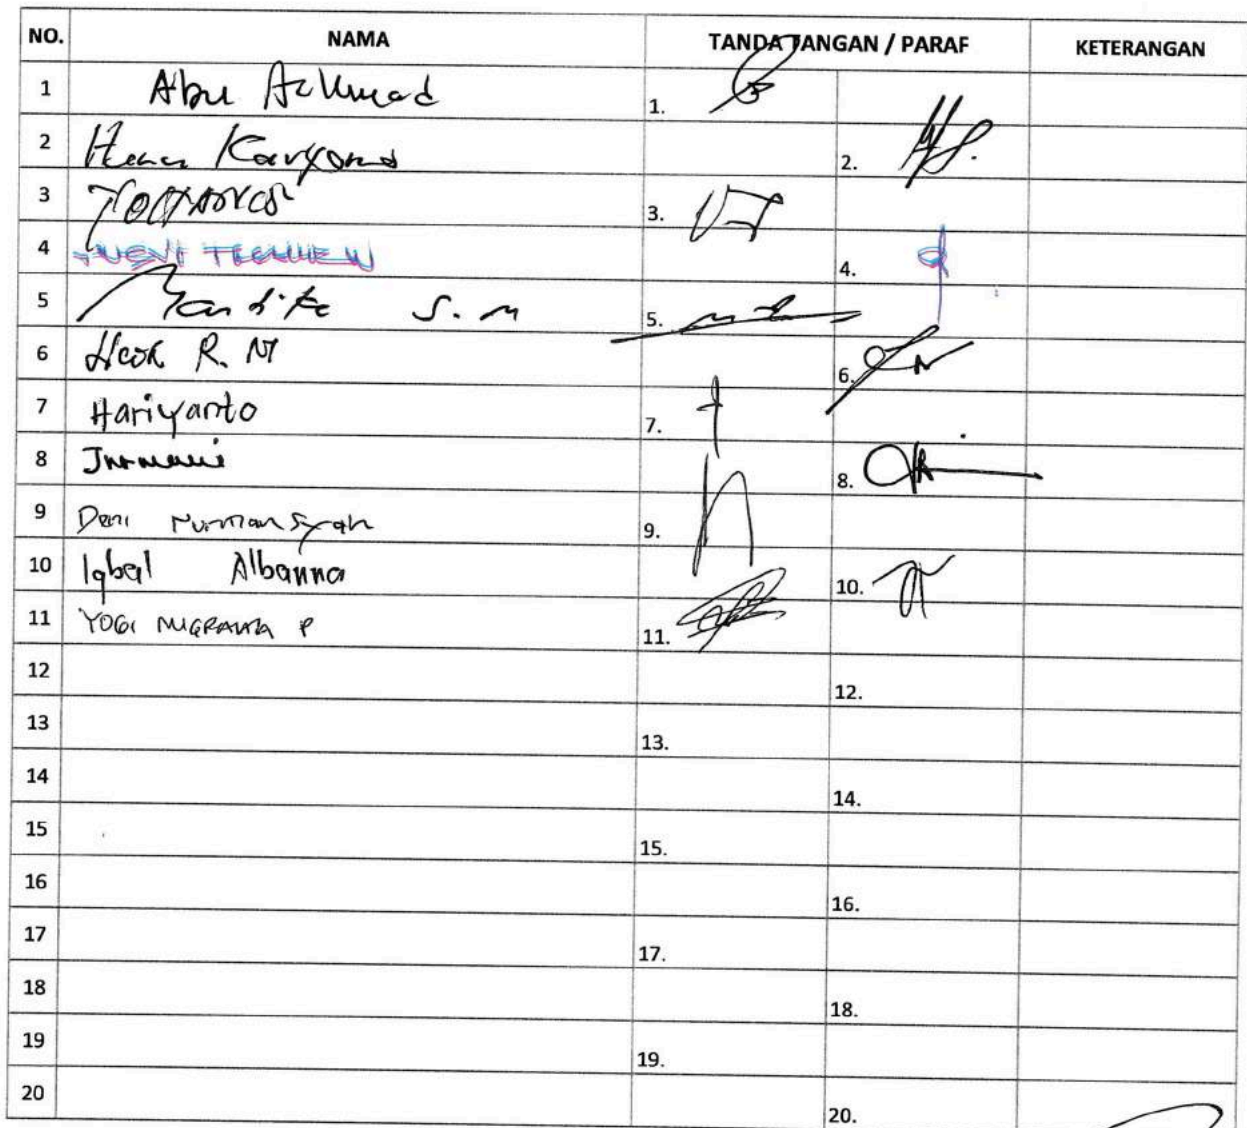 NO. NAMA TANDA TANGAN / PARAF KETERANGAN
1 Abu Achmad 1.
2 Karyono 2.
3 3.
4 4.
5 S. M 5.
6 R. M 6.
7 Hariyanto 7.
8 8.
9 Deni Nurmansyah 9.
10 Iqbal Albanna 10.
11 YOGI NUGRAHA P 11.
12 12.
13 13.
14 14.
15 15.
16 16.
17 17.
18 18.
19 19.
20 20.